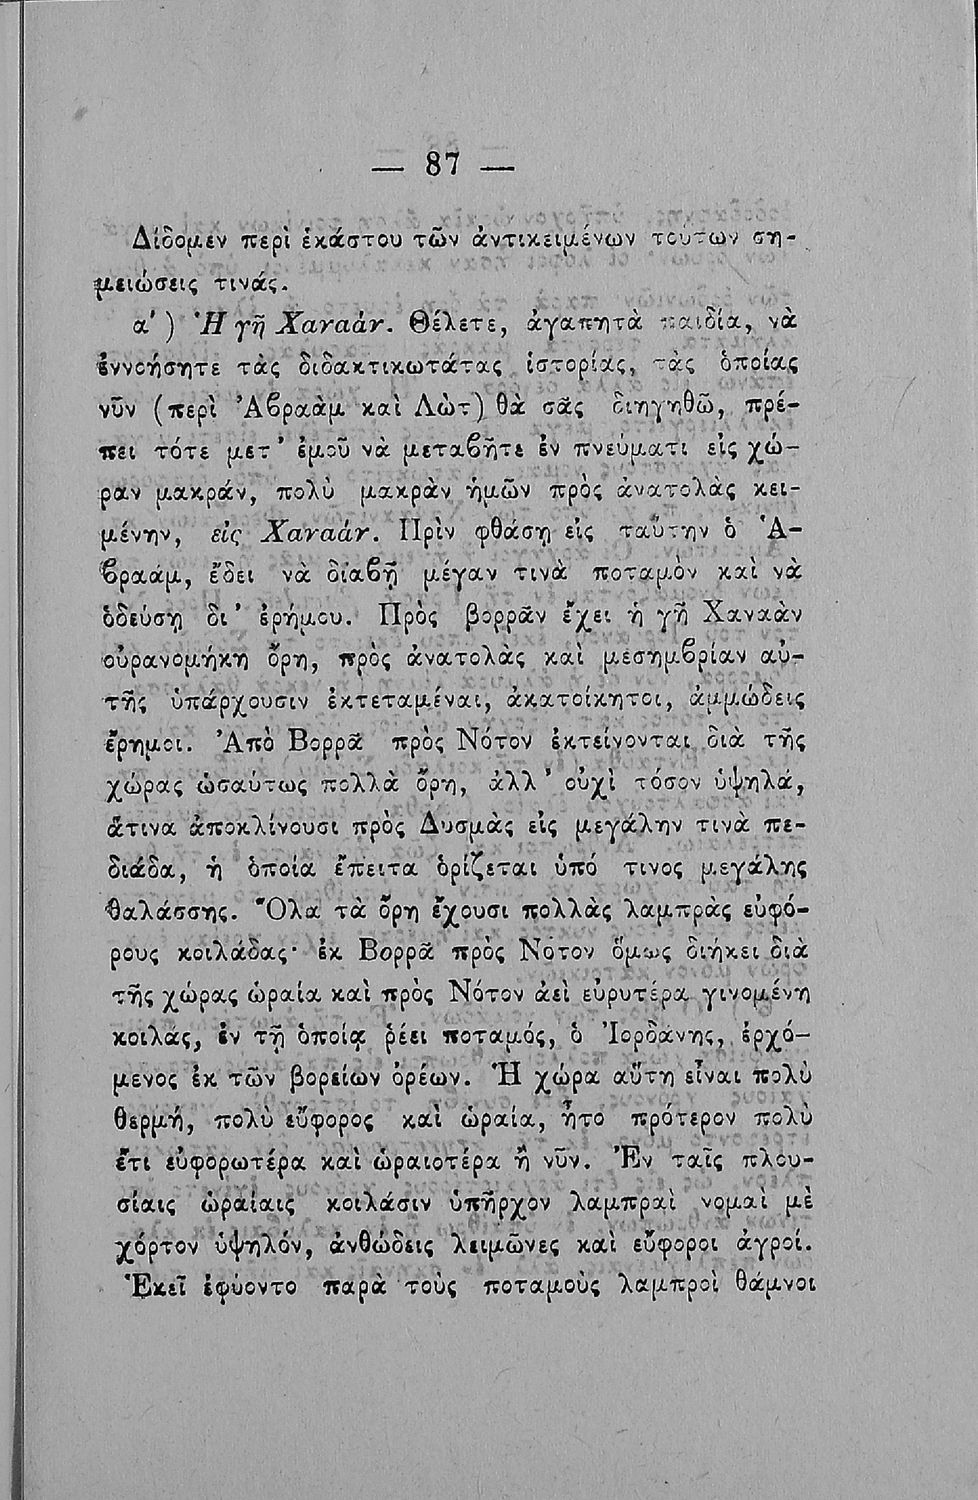 — 87 —
Δίδομεν περὶ ἑκάστου τῶν ἀντικειμένων τούτων ση-
μειώσεις τινάς.
α') Ἡ γῆ Χαναάν. Θέλετε, ἀγαπητὰ παιδία, νὰ
ἐννοήσητε τὰς διδακτικωτάτας ἱστορίας, τὰς ὁποίας
νῦν (περὶ Ἀβραὰμ καὶ Λὼτ) θὰ σᾶς διηγηθῶ, πρέ-
πει τότε μετ' ἐμοῦ νὰ μεταβῆτε ἐν πνεύματι εἰς χώ-
ραν μακράν, πολὺ μακρὰν ἡμῶν πρὸς ἀνατολὰς κει-
μένην, εἰς Χαναάν. Πρὶν φθάσῃ εἰς ταύτην ὁ Ἀ-
βραάμ, ἔδει νὰ διαβῇ μέγαν τινὰ ποταμὸν καὶ νὰ
ὁδεύσῃ δι' ἐρήμου. Πρὸς βορρᾶν ἔχει ἡ γῆ Χαναὰν
οὐρανομήκη ὄρη, πρὸς ἀνατολὰς καὶ μεσημβρίαν αὐ-
τῆς ὑπάρχουσιν ἐκτεταμέναι, ἀκατοίκητοι, ἀμμώδεις
ἔρημοι. Ἀπὸ Βορρᾶ πρὸς Νότον ἐκτείνονται διὰ τῆς
χώρας ὡσαύτως πολλὰ ὄρη, ἀλλ' οὐχὶ τόσον ὑψηλά,
ἅτινα ἀποκλίνουσι πρὸς Δυσμὰς εἰς μεγάλην τινὰ πε-
διάδα, ἡ ὁποία ἔπειτα ὁρίζεται ὑπό τινος μεγάλης
θαλάσσης. Ὅλα τὰ ὄρη ἔχουσι πολλὰς λαμπρὰς εὐφό-
ρους κοιλάδας· ἐκ Βορρᾶ πρὸς Νότον ὅμως διήκει διὰ
τῆς χώρας ὡραία καὶ πρὸς Νότον ἀεὶ εὐρυτέρα γινομένη
κοιλάς, ἐν τῇ ὁποίᾳ ῥέει ποταμός, ὁ Ἰορδάνης, ἐρχό-
μενος ἐκ τῶν βορείων ὀρέων. Ἡ χώρα αὕτη εἶναι πολὺ
θερμή, πολὺ εὔφορος καὶ ὡραία, ἦτο πρότερον πολὺ
ἔτι εὐφορωτέρα καὶ ὡραιοτέρα ἢ νῦν. Ἐν ταῖς πλου-
σίαις ὡραίαις κοιλάσιν ὑπῆρχον λαμπραὶ νομαὶ μὲ
χόρτον ὑψηλόν, ἀνθώδεις λειμῶνες καὶ εὔφοροι ἀγροί.
Ἐκεῖ ἐφύοντο παρὰ τοὺς ποταμοὺς λαμπροὶ θάμνοι